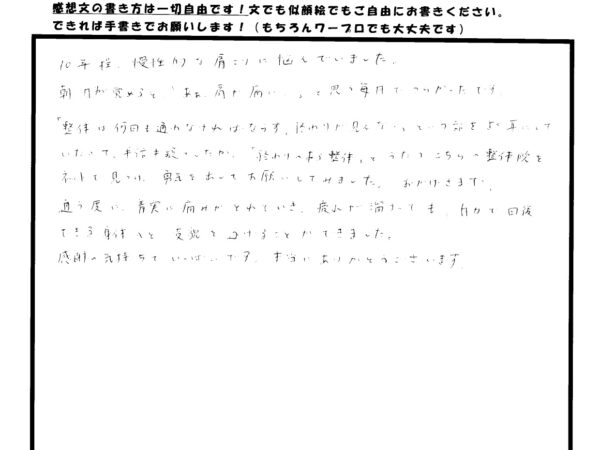 感想文の書き方は一切自由です！文でも似顔絵でもご自由にお書きください。
できれば手書きでお願いします！（もちろんワープロでも大丈夫です）
10年程、慢性的な肩こりに悩んでいました。
朝目が覚めると「あぁ、肩が痛い…」と思う毎日でつらかったです。
「整体は何回も通わなければならず、終わりが見えない」という話をよく耳にして
いたので、半信半疑でしたが、「終わりのある整体」とうたうこちらの整体院を
ネットで見つけ、勇気を出してお願いしてみました。おかげさまで、
通う度に、着実に痛みがとれていき、疲れが溜っても、自力で回復
できる身体へと変化を遂げることができました。
感謝の気持ちでいっぱいです。本当にありがとうございます。